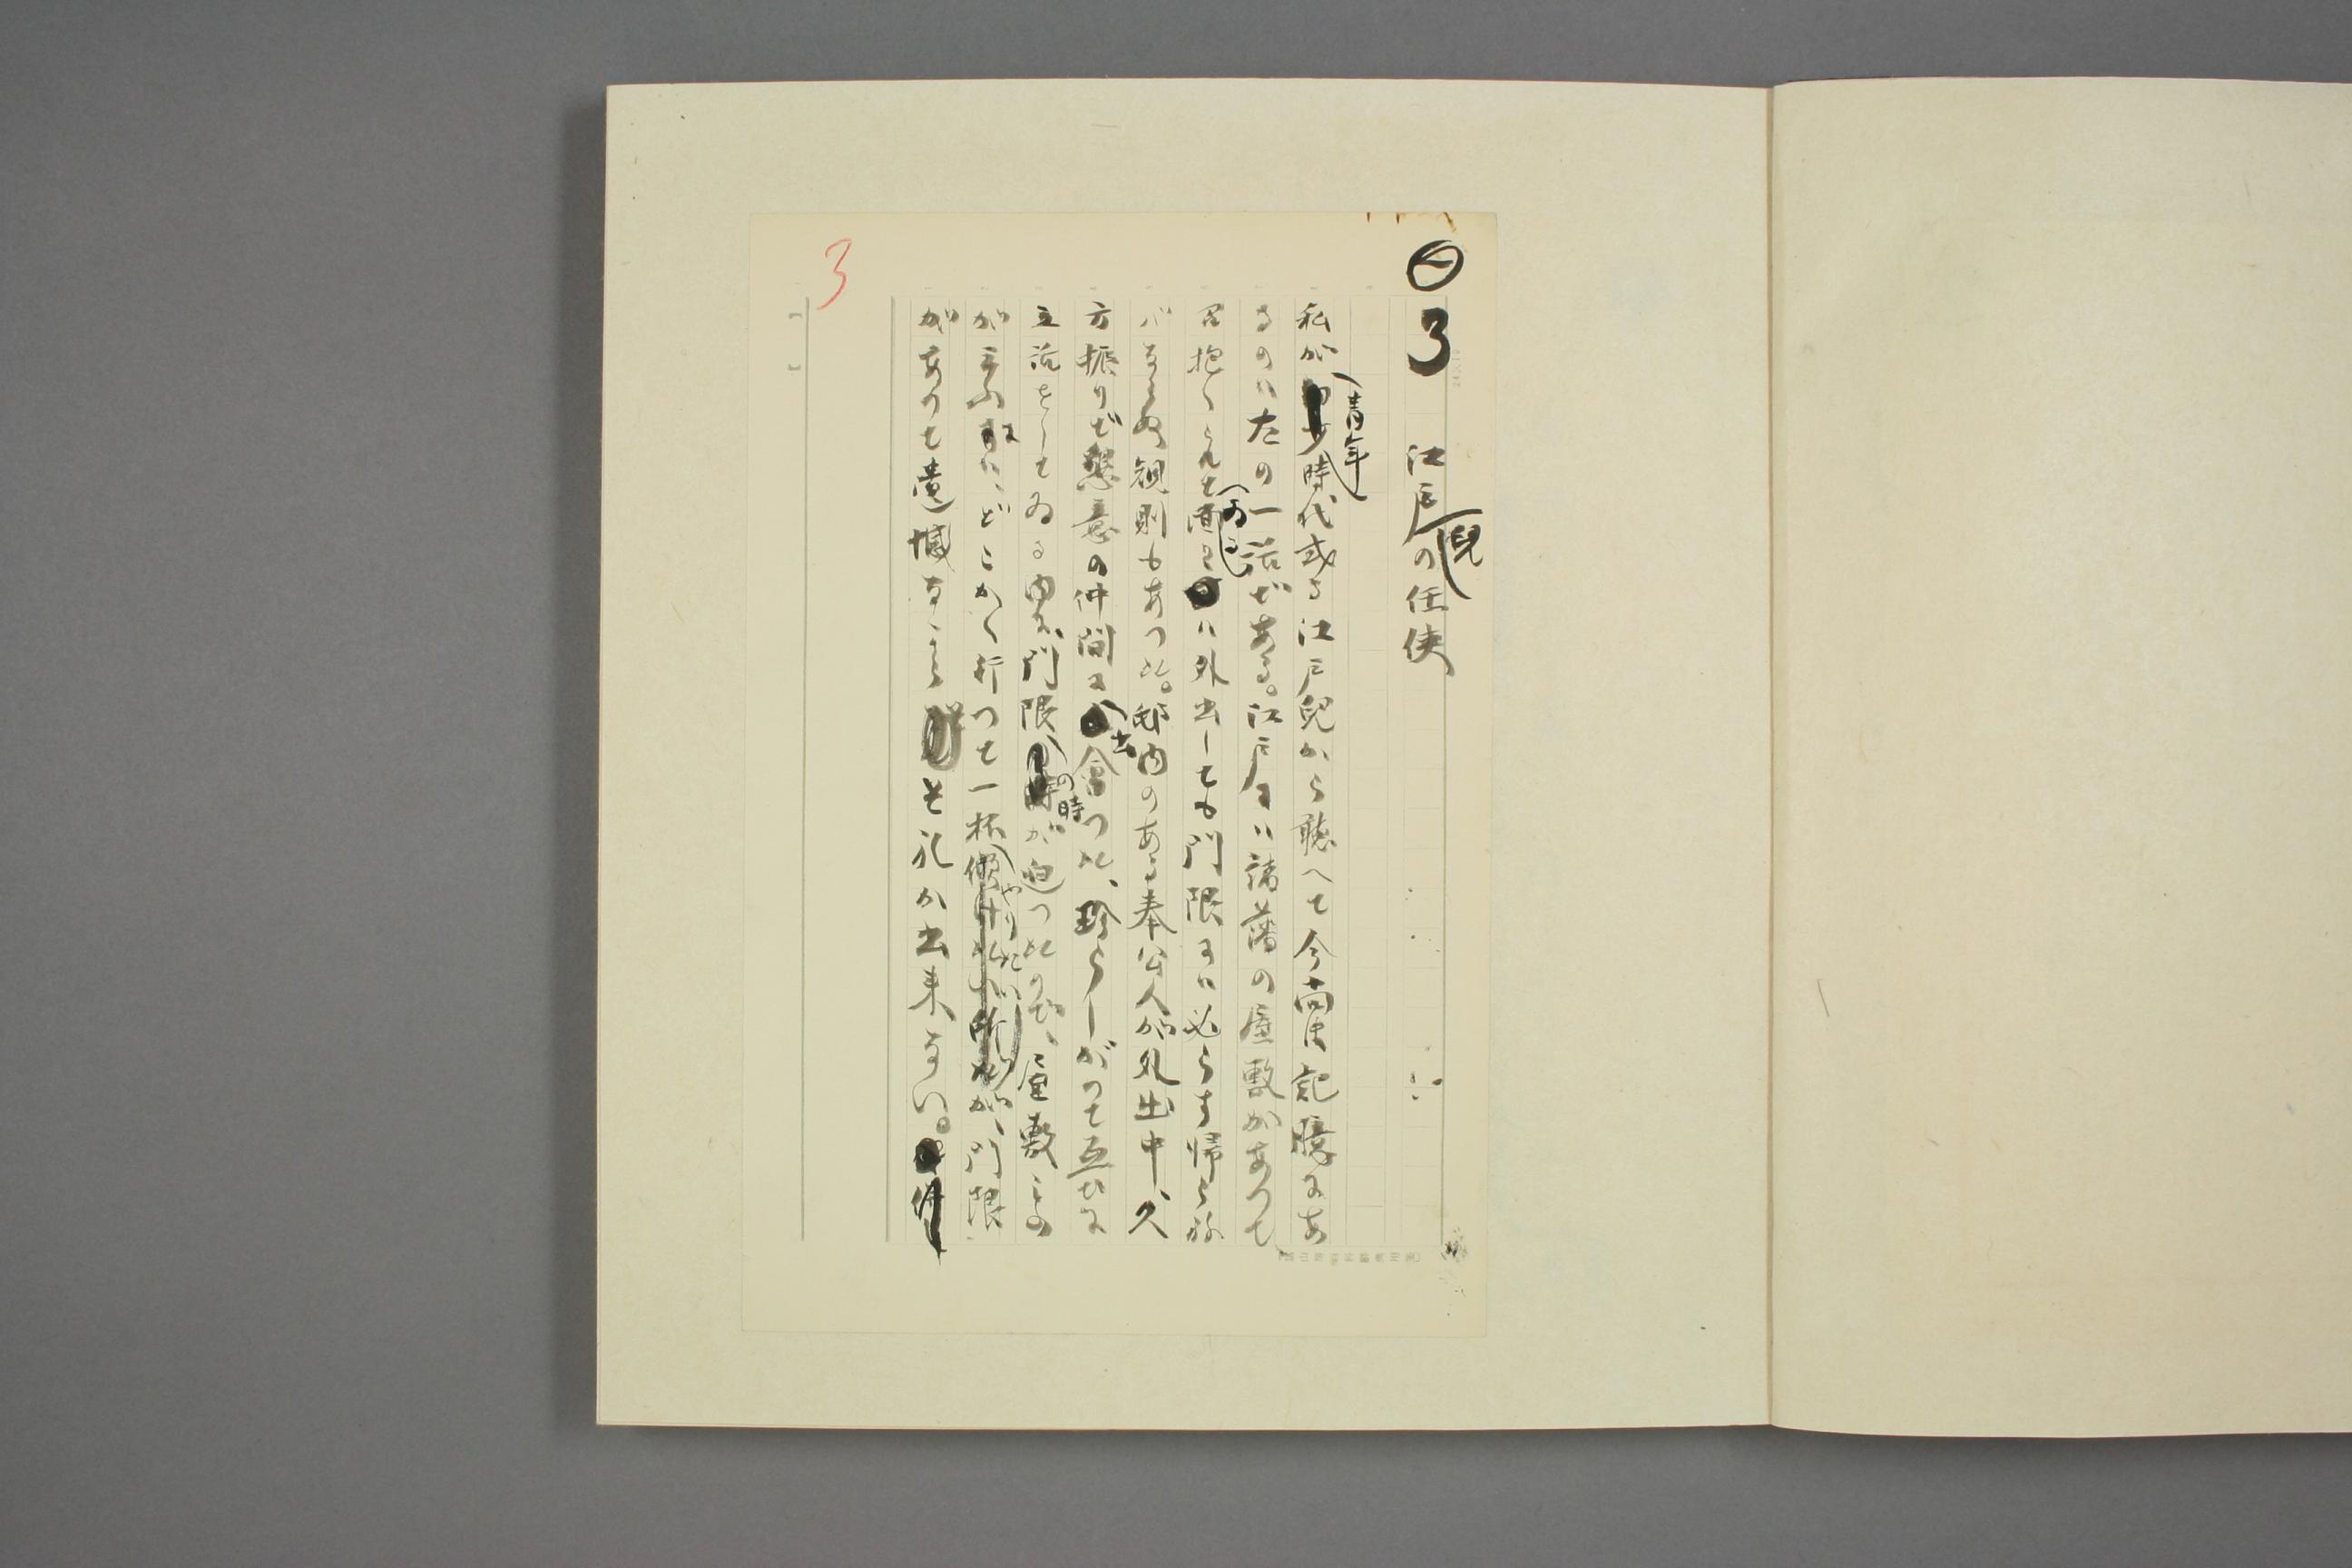 3 江戸兒の任侠
私が青年時代或る江戸兒から聴いて今尚ほ記臆にあ
るのは左の一話である。江戸には諸藩の屋敷があつて
召抱へられて居るものは外出しても門限には必らず帰らね
ばならぬ規則もあつた。邸内のある奉公人が外出中、久
方振りで懇意の仲間に出會つた、珍らしがつて互ひに
立話をしてゐる内に、門限の時が迫つたので、屋敷もの
が云ふには、どこかへ行つて一杯やりたいが、門限
があつて遺憾ながらそれが出来ない。
3